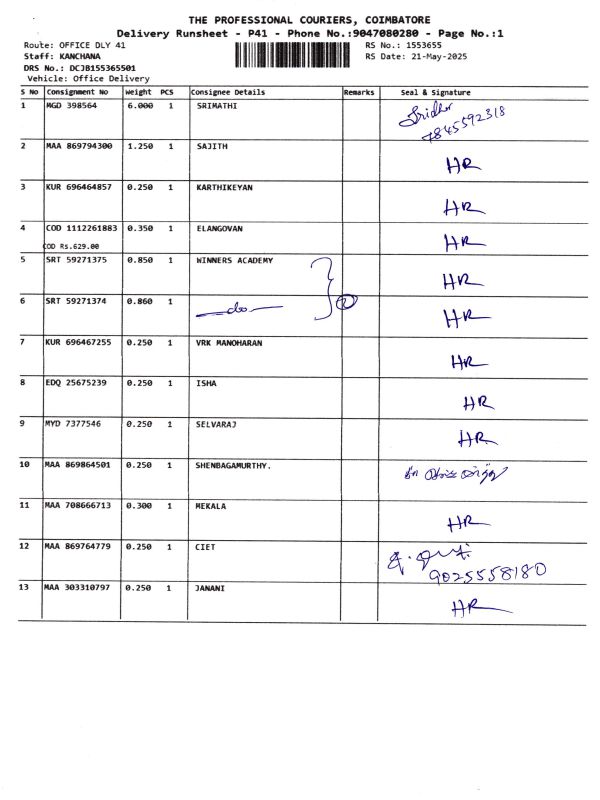 THE PROFESSIONAL COURIERS, COIMBATORE
Delivery Runsheet - P41 - Phone No.:9047080280 - Page No.:1
Route: OFFICE DLY 41 RS No.: 1553655
Staff: KANCHANA RS Date: 21-May-2025
DRS No.: DCJB155365501
Vehicle: Office Delivery
S No Consignment No Weight PCS Consignee Details Remarks Seal & Signature
1 MGD 398564 6.000 1 SRIMATHI Sridhar
7845592318
2 MAA 869794300 1.250 1 SAJITH HR
3 KUR 696464857 0.250 1 KARTHIKEYAN HR
4 COD 1112261883 0.350 1 ELANGOVAN HR
COD Rs.629.00
5 SRT 59271375 0.850 1 WINNERS ACADEMY HR
6 SRT 59271374 0.860 1 —do— 2 HR
7 KUR 696467255 0.250 1 VRK MANOHARAN HR
8 EDQ 25675239 0.250 1 ISHA HR
9 MYD 7377546 0.250 1 SELVARAJ HR
10 MAA 869864501 0.250 1 SHENBAGAMURTHY.
11 MAA 708666713 0.300 1 MEKALA HR
12 MAA 869764779 0.250 1 CIET
9025558180
13 MAA 303310797 0.250 1 JANANI HR